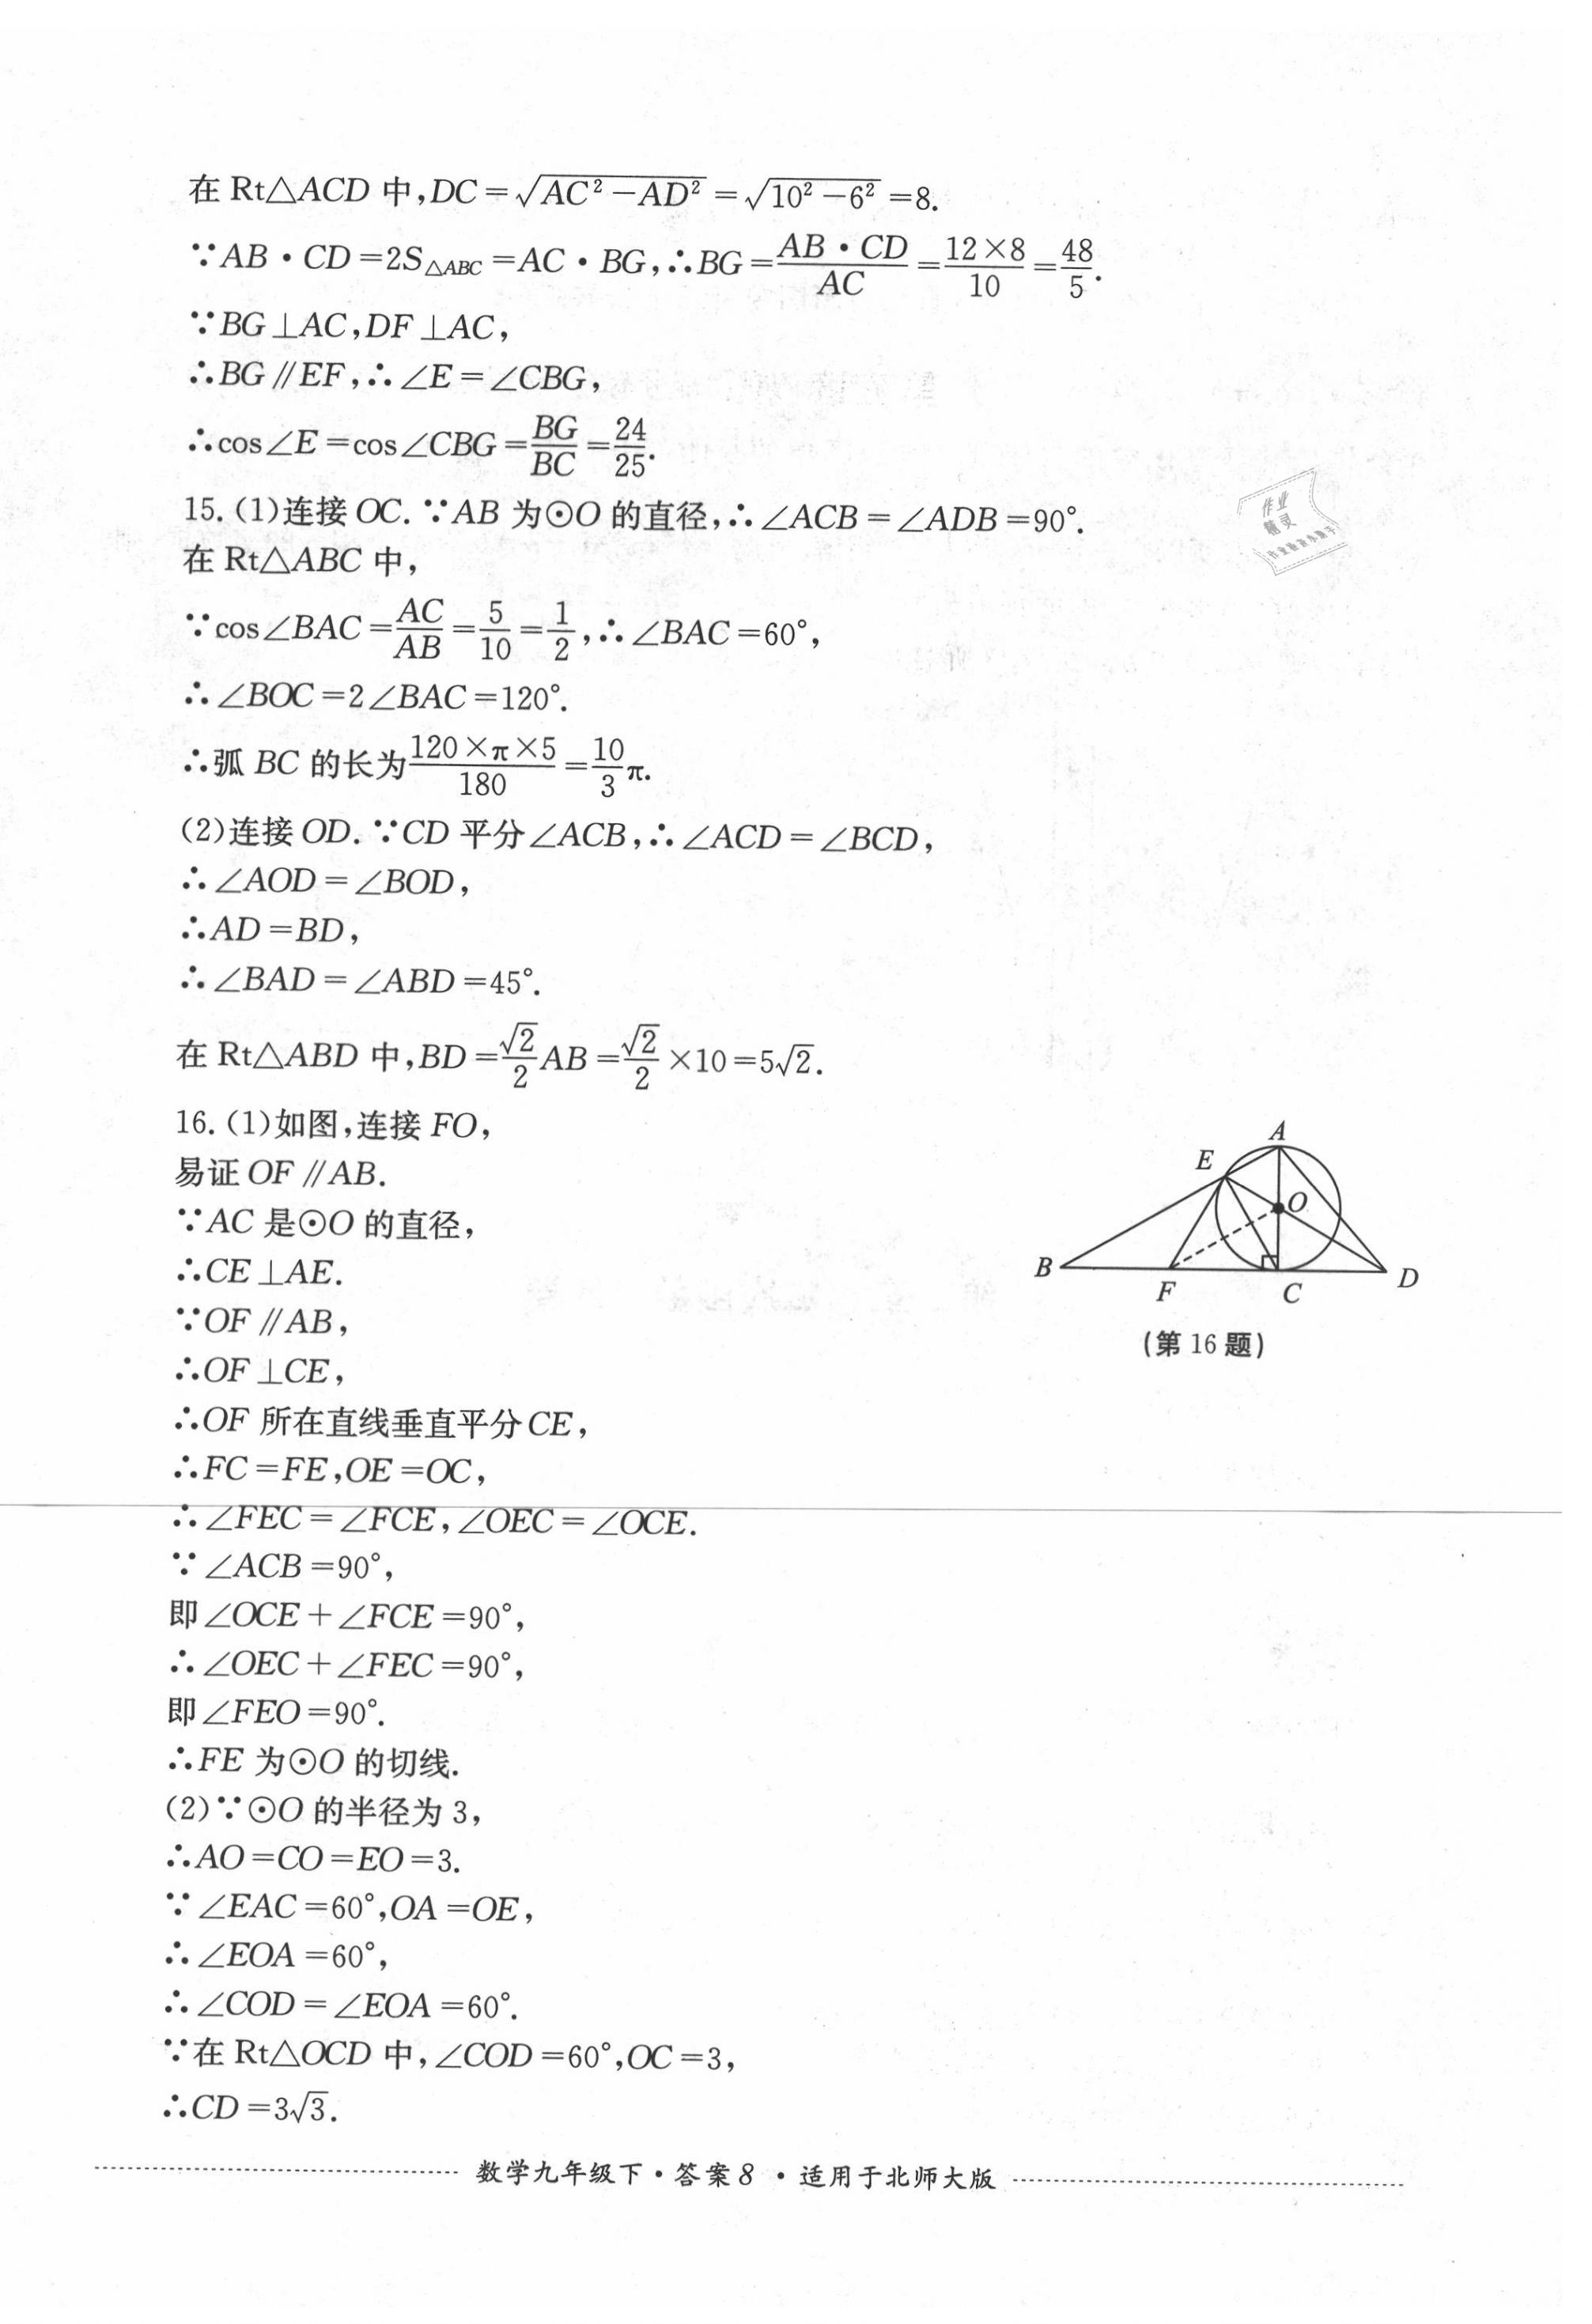 在 Rt△ACD 中,DC=√(AC²−AD²)=√(10²−6²)=8.
∵AB·CD=2S△ABC=AC·BG,∴BG=AB·CD/AC=12×8/10=48/5.
∵BG⊥AC,DF⊥AC,
∴BG∥EF,∴∠E=∠CBG,
∴cos∠E=cos∠CBG=BG/BC=24/25.
15.(1)连接 OC.∵AB 为⊙O 的直径,∴∠ACB=∠ADB=90°.
在 Rt△ABC 中,
∵cos∠BAC=AC/AB=5/10=1/2,∴∠BAC=60°,
∴∠BOC=2∠BAC=120°.
∴弧 BC 的长为120×π×5/180=10/3π.
(2)连接 OD.∵CD 平分∠ACB,∴∠ACD=∠BCD,
∴∠AOD=∠BOD,
∴AD=BD,
∴∠BAD=∠ABD=45°.
在 Rt△ABD 中,BD=√2/2AB=√2/2×10=5√2.
16.(1)如图,连接 FO,
易证 OF∥AB.
∵AC 是⊙O 的直径,
∴CE⊥AE.
∵OF∥AB,
∴OF⊥CE,
∴OF 所在直线垂直平分 CE,
∴FC=FE,OE=OC,
∴∠FEC=∠FCE,∠OEC=∠OCE.
∵∠ACB=90°,
即∠OCE+∠FCE=90°,
∴∠OEC+∠FEC=90°,
即∠FEO=90°.
∴FE 为⊙O 的切线.
(2)∵⊙O 的半径为 3,
∴AO=CO=EO=3.
∵∠EAC=60°,OA=OE,
∴∠EOA=60°,
∴∠COD=∠EOA=60°.
∵在 Rt△OCD 中,∠COD=60°,OC=3,
∴CD=3√3.
A
E
O
B
F
C
D
(第 16 题)
作业
精灵
数学九年级下·答案8·适用于北师大版